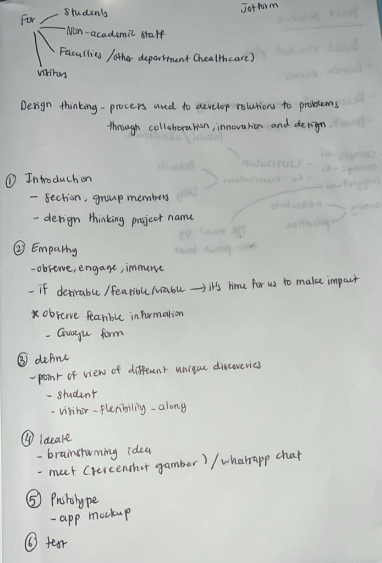 Jotform
For
Students
Non-academic staff
Faculties / other department (healthcare)
visitors
Design thinking - process used to develop solutions to problems
through collaboration, innovation and design.
① Introduction
- section, group members
- design thinking project name
② Empathy
- observe, engage, immerse
- if desirable / feasible / viable → it's time for us to make impact
* observe feasible information
- Google form
③ define
- point of view of different unique discoveries
- student
- visitor - flexibility - along
④ Ideate
- brainstorming idea
- meet (screenshot gambar) / whatsapp chat
⑤ Prototype
- app mockup
⑥ test